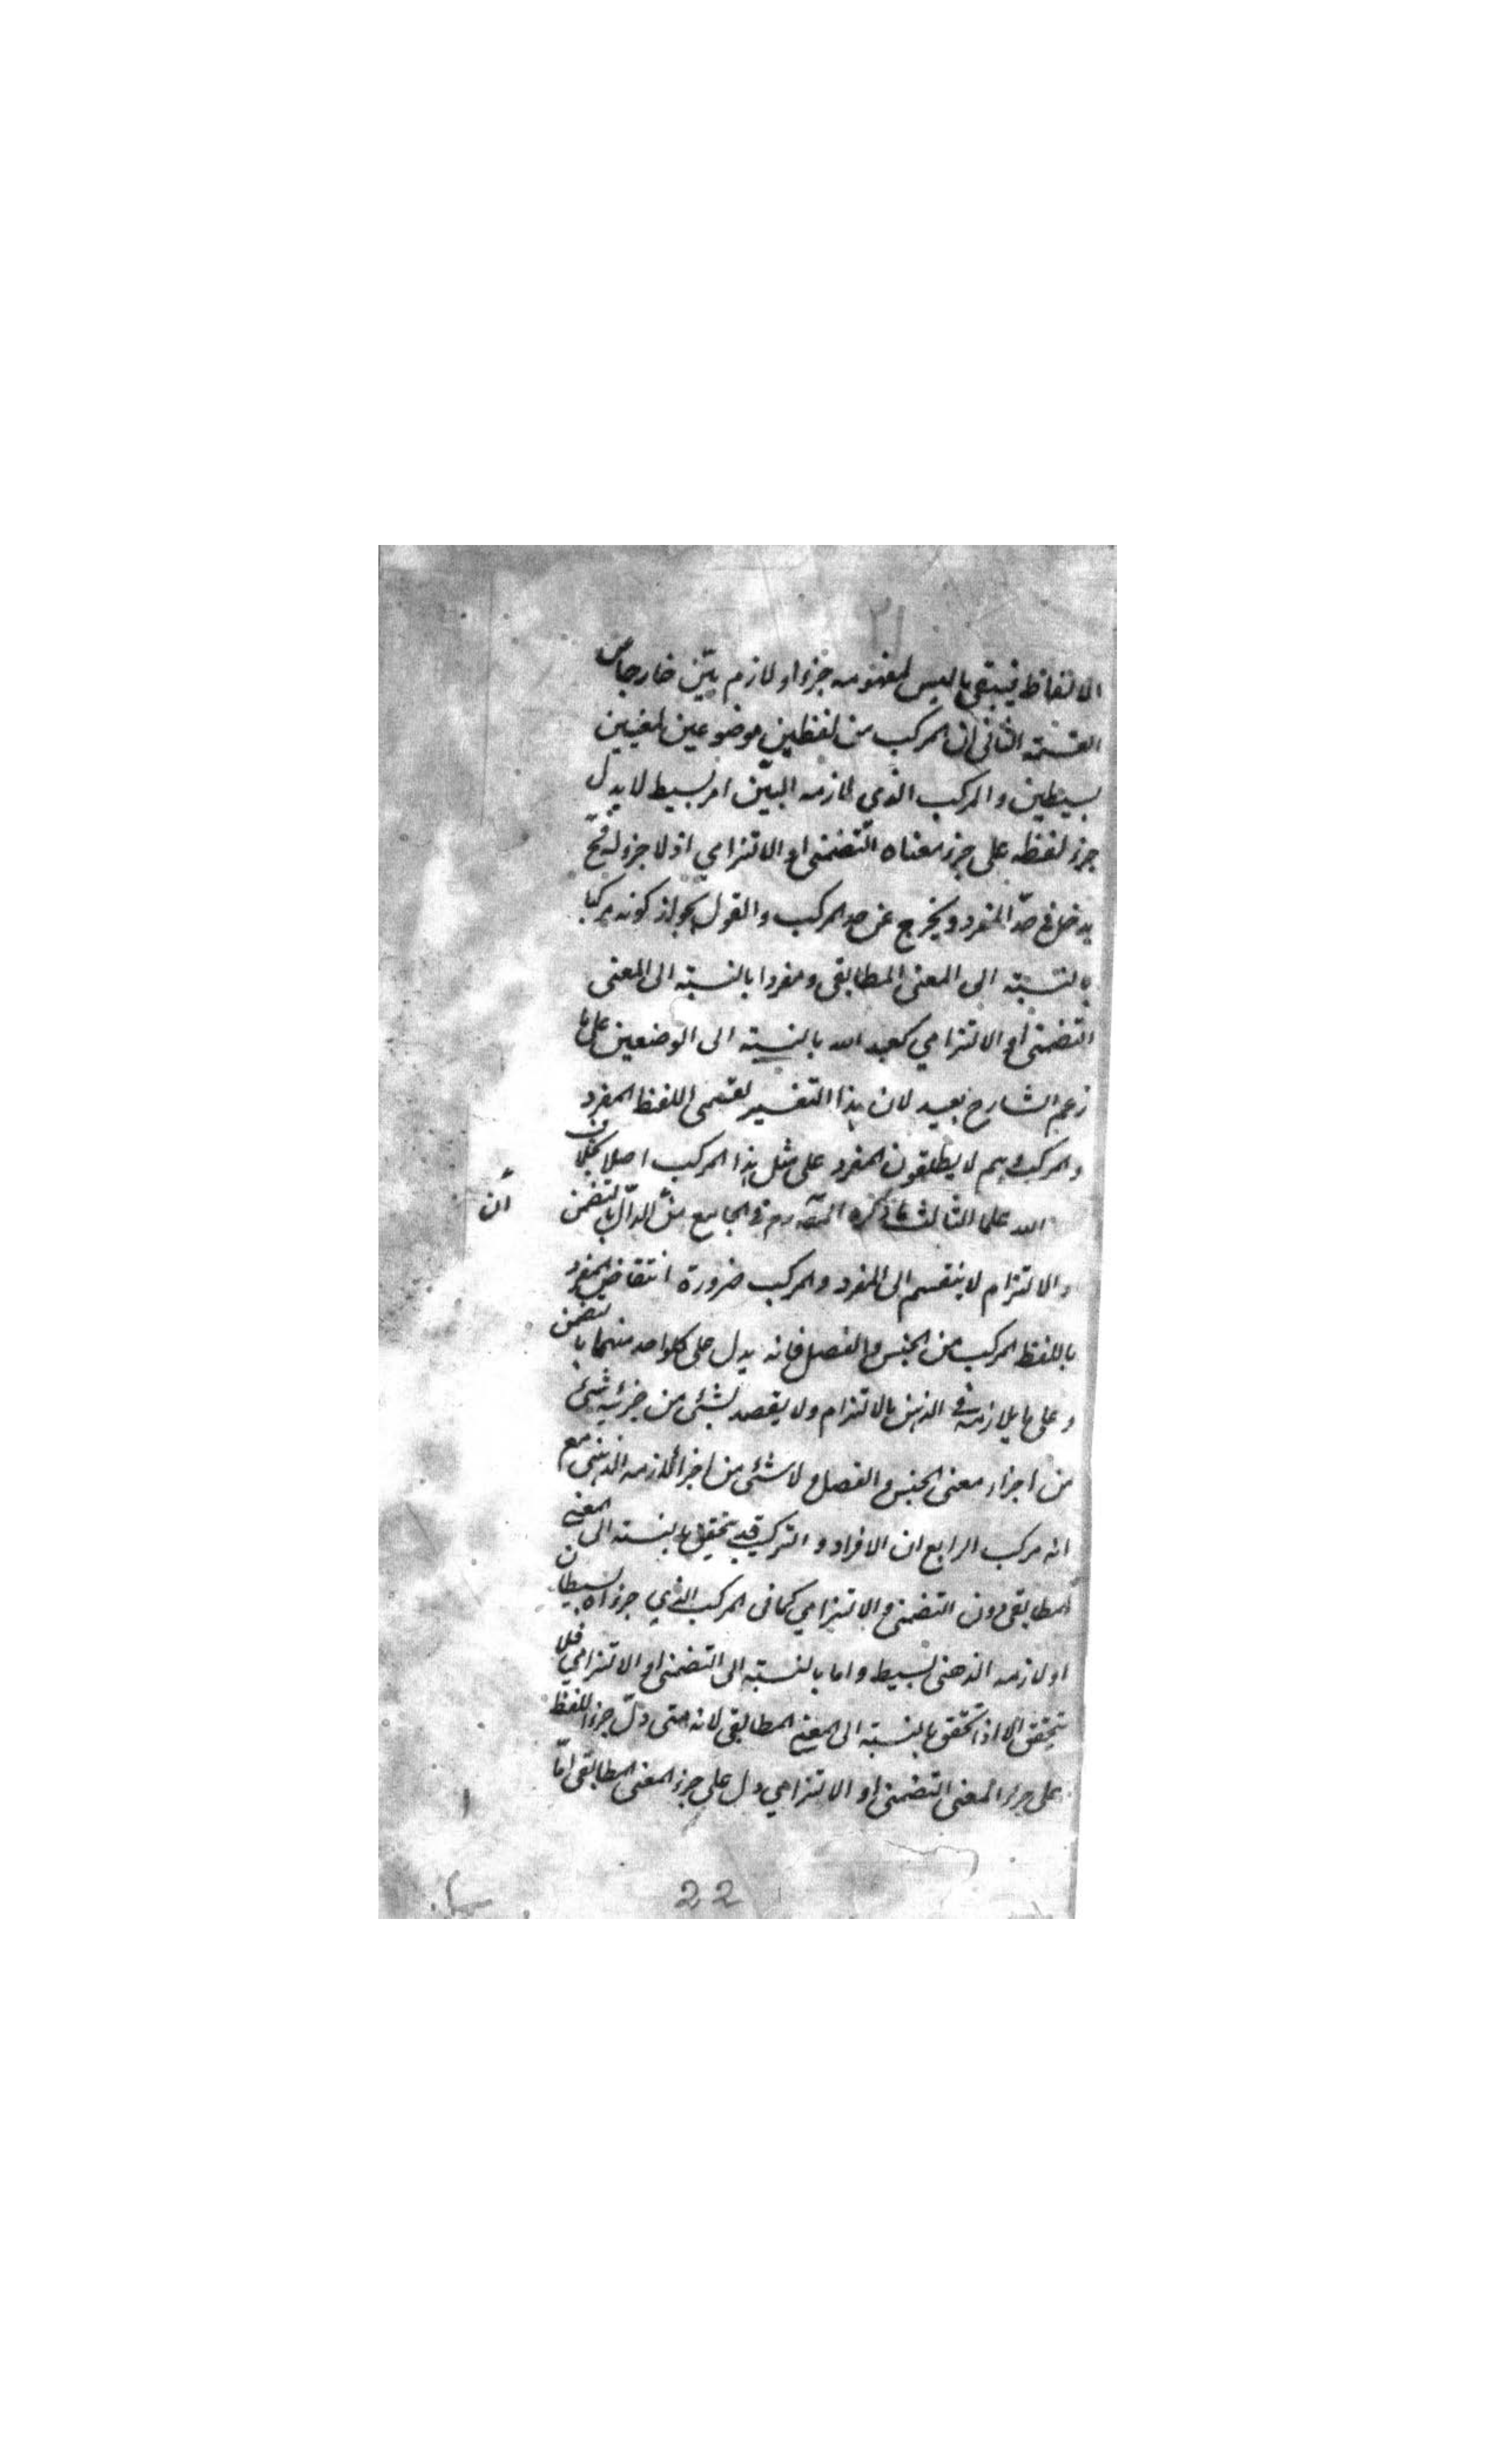 ٢١
الالفاظ فيبقى ما ليس لمفهومه جزء او لازم بيّن خارجا عن
القسمة الثانى ان المركب من لفظين موضوعين لمعنيين
بسيطين والمركب الذي لازمه البيّن امر بسيط لا يدل
جزء لفظه على جزء معناه التضمنى او الالتزامي اذ لا جزء له فح
يدخل في حدّ المفرد ويخرج عن حد المركب والقول بجواز كونه مركبا
بالنسبة الى المعنى المطابقى ومفردا بالنسبة الى المعنى
التضمنى او الالتزامي كعبد الله بالنسبة الى الوضعين على ما
زعم الشارح بعيد لان هذا التفسير لقسمى اللفظ المفرد
والمركب وهم لا يطلقون المفرد على مثل هذا المركب اصلا بخلاف
الله على الثالث ما ذكره المصـ رح في الجامع من الدالّ بالتضمن
ان
والالتزام لا ينقسم الى المفرد والمركب ضرورة انتقاض المفرد
باللفظ المركب من الجنس والفصل فانه يدل على كلواحد منهما بالتضمن
وعلى ما يلازمه في الذهن بالالتزام ولا يقصد بشئ من جزئيه شئ
من اجزاء معنى الجنس والفصل ولا شئ من اجزاء لازمه الذهنى مع
انه مركب الرابع ان الافراد والتركيب قد يتحقق بالنسبة الى المعنى
المطابقى دون التضمنى والالتزامي كما فى المركب الذي جزءاه بسيطان
او لازمه الذهنى بسيط واما بالنسبة الى التضمنى او الالتزامي فلا
يتحقق الا اذا تحقق بالنسبة الى المعنى المطابقى لانه متى دلّ جزء اللفظ
على جزء المعنى التضمنى او الالتزامي دل على جزء المعنى المطابقى امّا
22